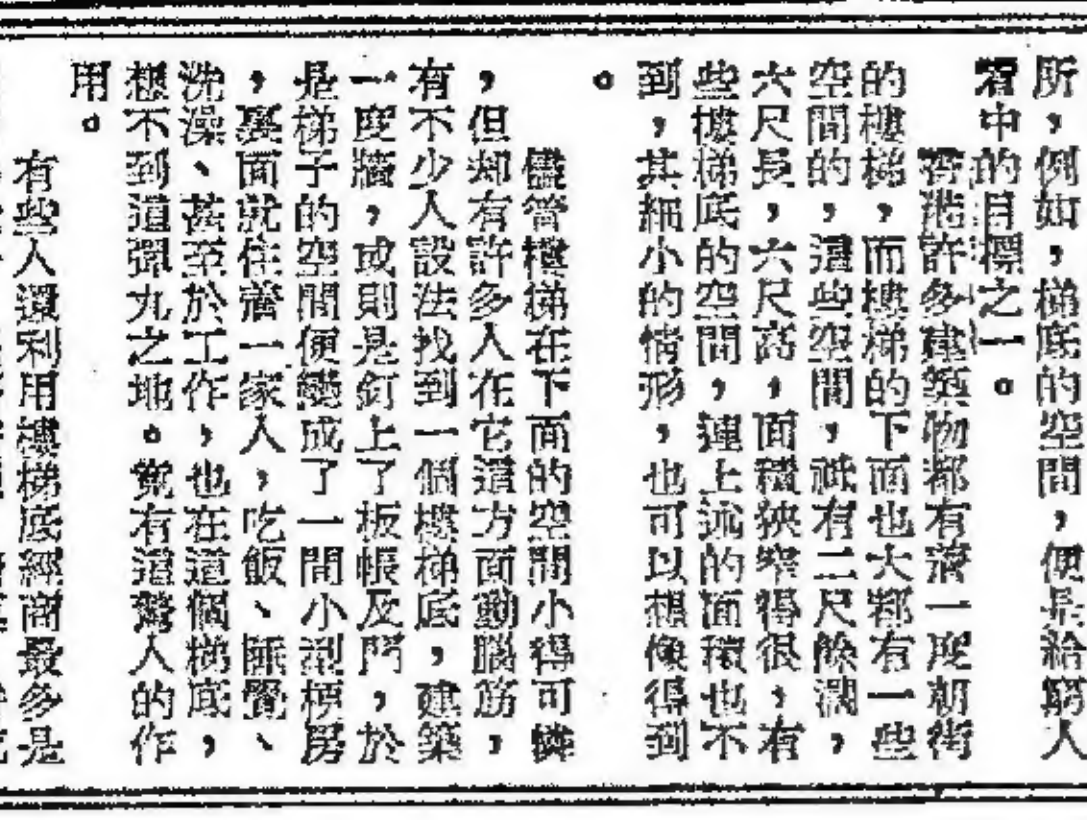 所，例如，梯底的空間，便是給窮人
看中的目標之一。
香港許多建築物都有濟一度朝街
的樓梯，而樓梯的下面也大都有一些
空間的，這些空間，祇有二尺餘濶，
六尺長，六尺高，面積狹窄得很，有
些樓梯底的空間，連上述的面積也不
到，其細小的情形，也可以想像得到
。
儘管樓梯在下面的空間小得可憐
，但却有許多人在它這方面動腦筋，
有不少人設法找到一個樓梯底，建築
一度牆，或則是釘上了板帳及門，於
是梯子的空間便變成了一間小型梗房
，裏面就住着一家人，吃飯、睡覺、
洗澡、甚至於工作，也在這個梯底，
想不到這彈丸之地。竟有這驚人的作
用。
有些人還利用樓梯底經商最多是